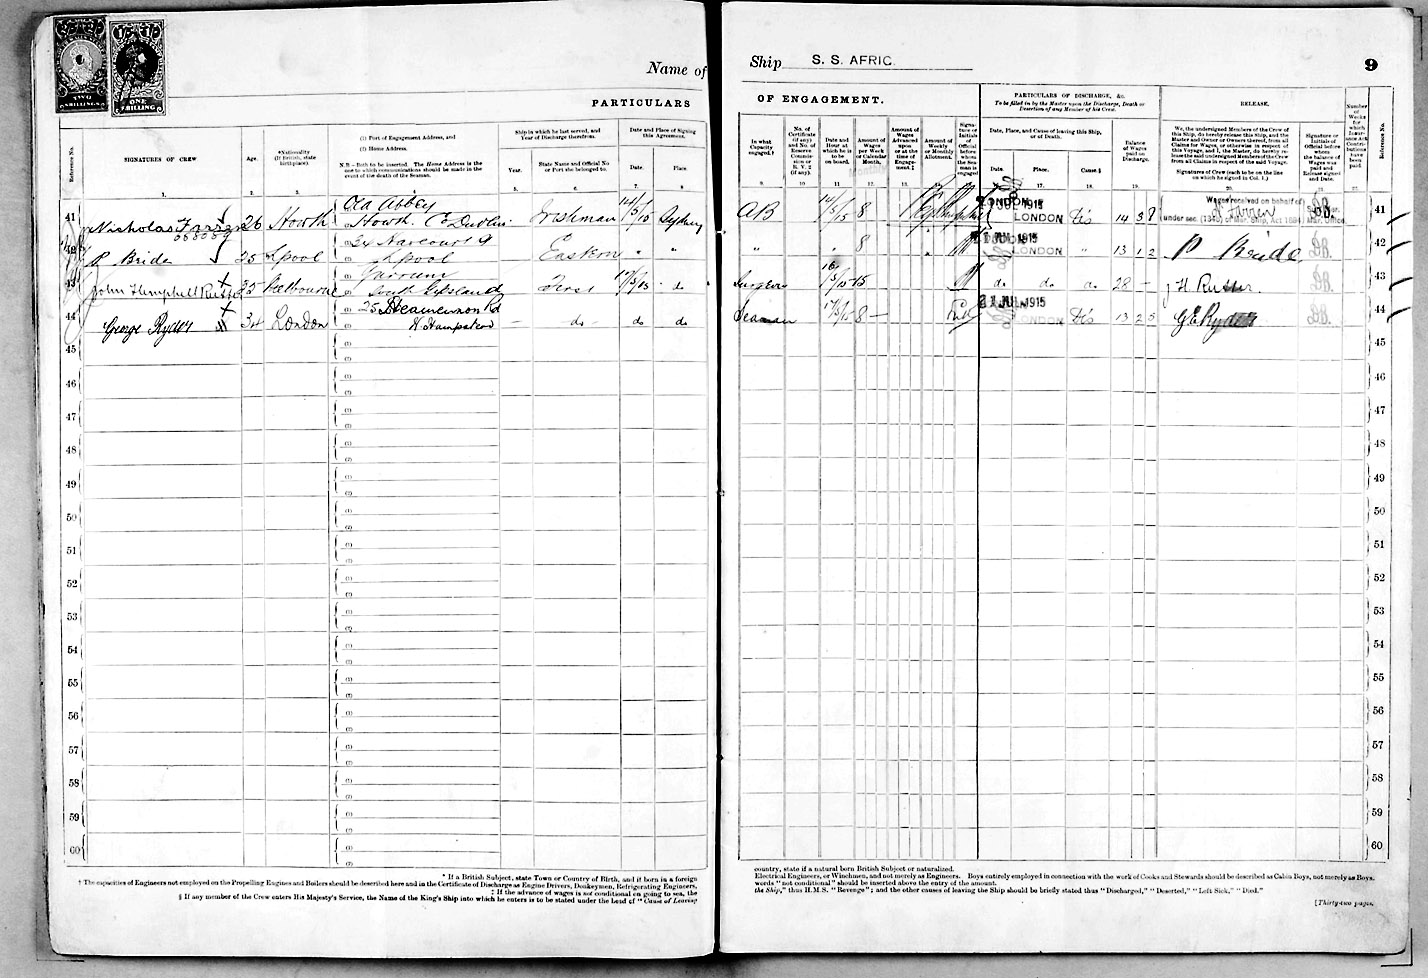 TWO
SHILLINGS
1 1
ONE
SHILLING
Name of
Ship S. S. AFRIC
9
PARTICULARS
OF ENGAGEMENT.
Reference No.
SIGNATURES OF CREW
Age.
*Nationality
(If British, state
birthplace).
(1) Port of Engagement Address, and
(2) Home Address.
N.B.—Both to be inserted. The Home Address is the
one to which communications should be made in the
event of the death of the Seaman.
Ship in which he last served, and
Year of Discharge therefrom.
Year.
State Name and Official No
or Port she belonged to.
Date and Place of Signing
this Agreement.
Date.
Place.
In what
Capacity
engaged.†
No. of
Certificate
(if any)
and No. of
Reserve
Commis-
sion or
R. V. 2
(if any).
Date and
Hour at
which he is
to be
on board.
Amount of
Wages per
Week or
Calendar
Month.
Monthly
Amount of
Wages
Advanced
upon
or at the
time of
Engage-
ment.‡
Amount of
Weekly
or Monthly
Allotment.
Signa-
ture or
Initials of
Official
before
whom the
Seaman is
engaged
PARTICULARS OF DISCHARGE, &c.
To be filled in by the Master upon the Discharge, Death or
Desertion of any Member of his Crew.
Date, Place, and Cause of leaving this Ship,
or of Death.
Date.
Place.
Cause.§
Balance
of Wages
paid on
Discharge.
RELEASE.
We, the undersigned Members of the Crew of
this Ship, do hereby release this Ship, and the
Master and Owner or Owners thereof, from all
Claims for Wages, or otherwise in respect of
this Voyage, and I, the Master, do hereby re-
lease the said undersigned Members of the Crew
from all Claims in respect of the said Voyage.
Signatures of Crew (each to be on the line
on which he signed in Col. 1.)
Signature or
Initials of
Official before
whom
the balance of
Wages was
paid and
Release signed
and Date.
Number
of
Weeks
for
which
Insur-
ance Act
Contri-
butions
have
been
paid.
Reference No.
1. 2. 3. 4. 5. 6. 7. 8. 9. 10 11 12. 13. 17. 18. 19. 20. 21.
41 Nicholas Farrer 26 Howth Old Abbey
Howth Co Dublin Irishman 14/5/15 Sydney AB 14/5/15 8 JUL 1915 LONDON Dis 14 3 9 Wages received on behalf of
under sec. Mar. Ship. Act 1894 41
42 P Bride 25 Lpool 34 Harcourt St
Lpool Eastern " " " " 8 JUL 1915 LONDON " 13 1 2 P Bride 42
43 John Hemphill 25 Melbourne Yarram
South Gipsland First 17/5/15 do Surgeon 15 do do do 28 — J H. 43
44 George Ryder 34 London 25
W. Hampstead — do do do Seaman 17/5/15 8 — 21 JUL 1915 LONDON Dis 13 2 5 G E Ryder 44
45 45
46 46
47 47
48 48
49 49
50 50
51 51
52 52
53 53
54 54
55 55
56 56
57 57
58 58
59 59
60 60
* If a British Subject, state Town or Country of Birth, and if born in a foreign
country, state if a natural born British Subject or naturalized.
† The capacities of Engineers not employed on the Propelling Engines and Boilers should be described here and in the Certificate of Discharge as Engine Drivers, Donkeymen, Refrigerating Engineers,
Electrical Engineers, or Winchmen, and not merely as Engineers. Boys entirely employed in connection with the work of Cooks and Stewards should be described as Cabin Boys, not merely as Boys.
‡ If the advance of wages is not conditional on going to sea, the
words "not conditional" should be inserted above the entry of the amount.
§ If any member of the Crew enters His Majesty's Service, the Name of the King's Ship into which he enters is to be stated under the head of "Cause of Leaving
the Ship," thus H.M.S. "Revenge"; and the other causes of leaving the Ship should be briefly stated thus "Discharged," "Deserted," "Left Sick," "Died."
[Thirty-two pages.